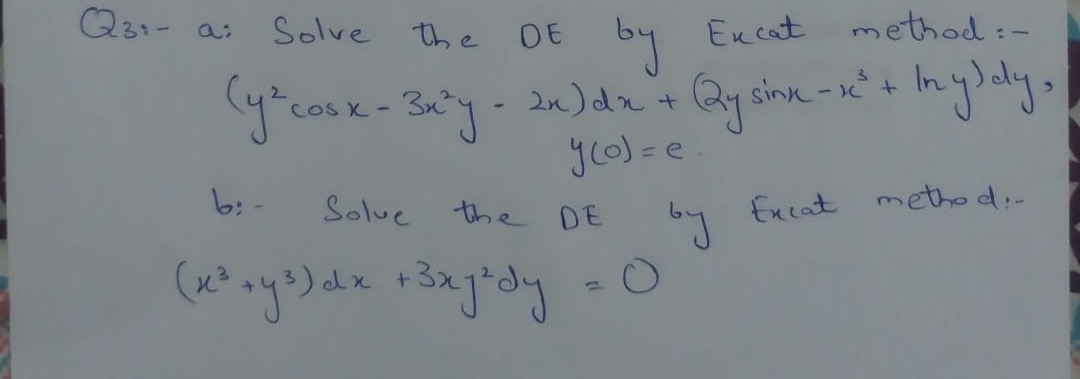 Q3:- a: Solve the DE by Excat method:-
(y² cos x - 3x²y - 2x) dx + (2y sin x - x³ + ln y) dy,
y(0) = e.
b:- Solve the DE by Excat method:-
(x³ + y³) dx + 3xy² dy = 0